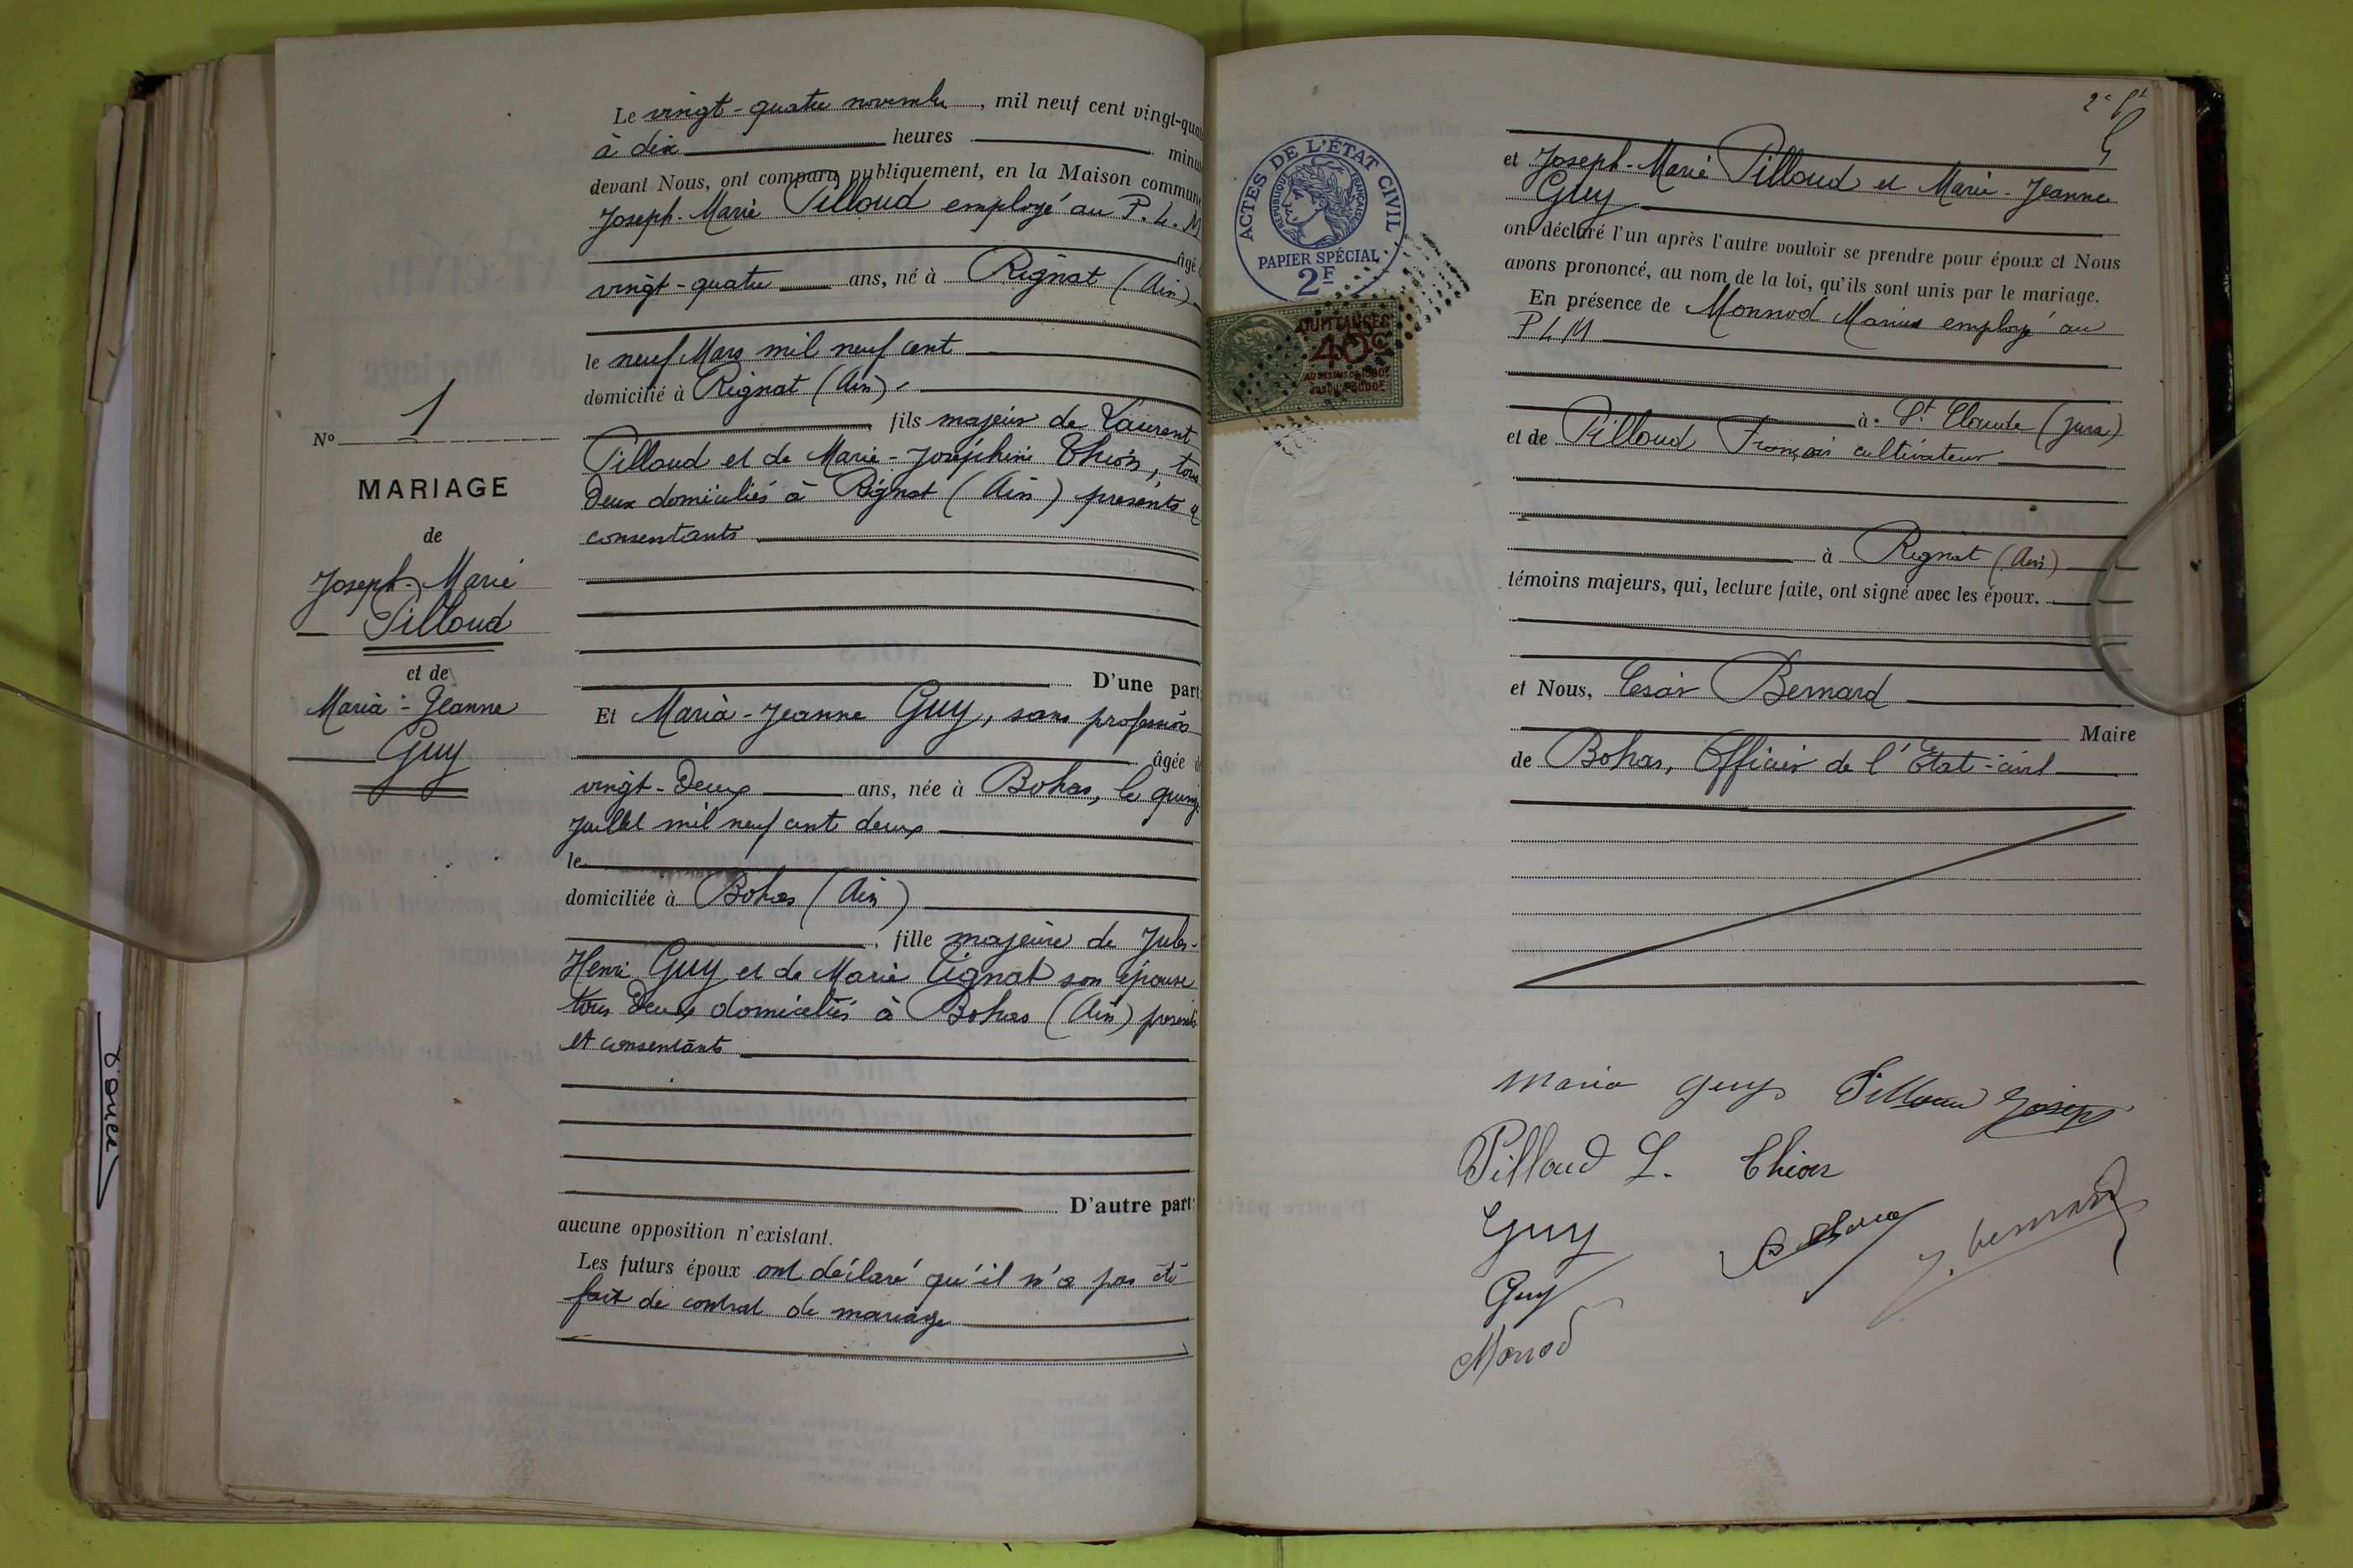 Le vingt-quatre novembre, mil neuf cent vingt-qua
à dix heures minu
devant Nous, ont comparu publiquement, en la Maison commune
Joseph-Marie Pilloud employé au P.L.M
âgé d
vingt-quatre ans, né à Rignat (Ain)
le neuf Mars mil neuf cent
domicilié à Rignat (Ain)
fils majeur de Laurent
Pilloud et de Marie-Joséphine Thion, tous
Deux domiciliés à Rignat (Ain) présents et
consentants
D'une part
Et Maria-Jeanne Guy, sans profession
âgée d
vingt-Deux ans, née à Bohas, le quinze
Juillet mil neuf cent deux
le
domiciliée à Bohas (Ain)
, fille majeure de Jules-
Henri Guy et de Marie Tignat son épouse
tous Deux domiciliés à Bohas (Ain) présents
et consentants
D'autre part;
aucune opposition n'existant.
Les futurs époux ont déclaré qu'il n'a pas été
fait de contrat de mariage
No 1
MARIAGE
de
Joseph-Marie
Pilloud
et de
Maria-Jeanne
Guy
ACTES DE L'ÉTAT CIVIL
RÉPUBLIQUE FRANÇAISE
PAPIER SPÉCIAL
2F
QUITTANCES
40c
et Joseph-Marie Pilloud et Marie-Jeanne
Guy
ont déclaré l'un après l'autre vouloir se prendre pour époux et Nous
avons prononcé, au nom de la loi, qu'ils sont unis par le mariage.
En présence de Monnod Marius employé au
PLM
à St Claude (Jura)
et de Pilloud François cultivateur
à Rignat (Ain)
témoins majeurs, qui, lecture faite, ont signé avec les époux.
et Nous, César Bernard
Maire
de Bohas, Officier de l'Etat-civil
Maria Guy Pilloud Joseph
Pilloud L. Thion
Guy
J. Bernard
Guy
Monnod